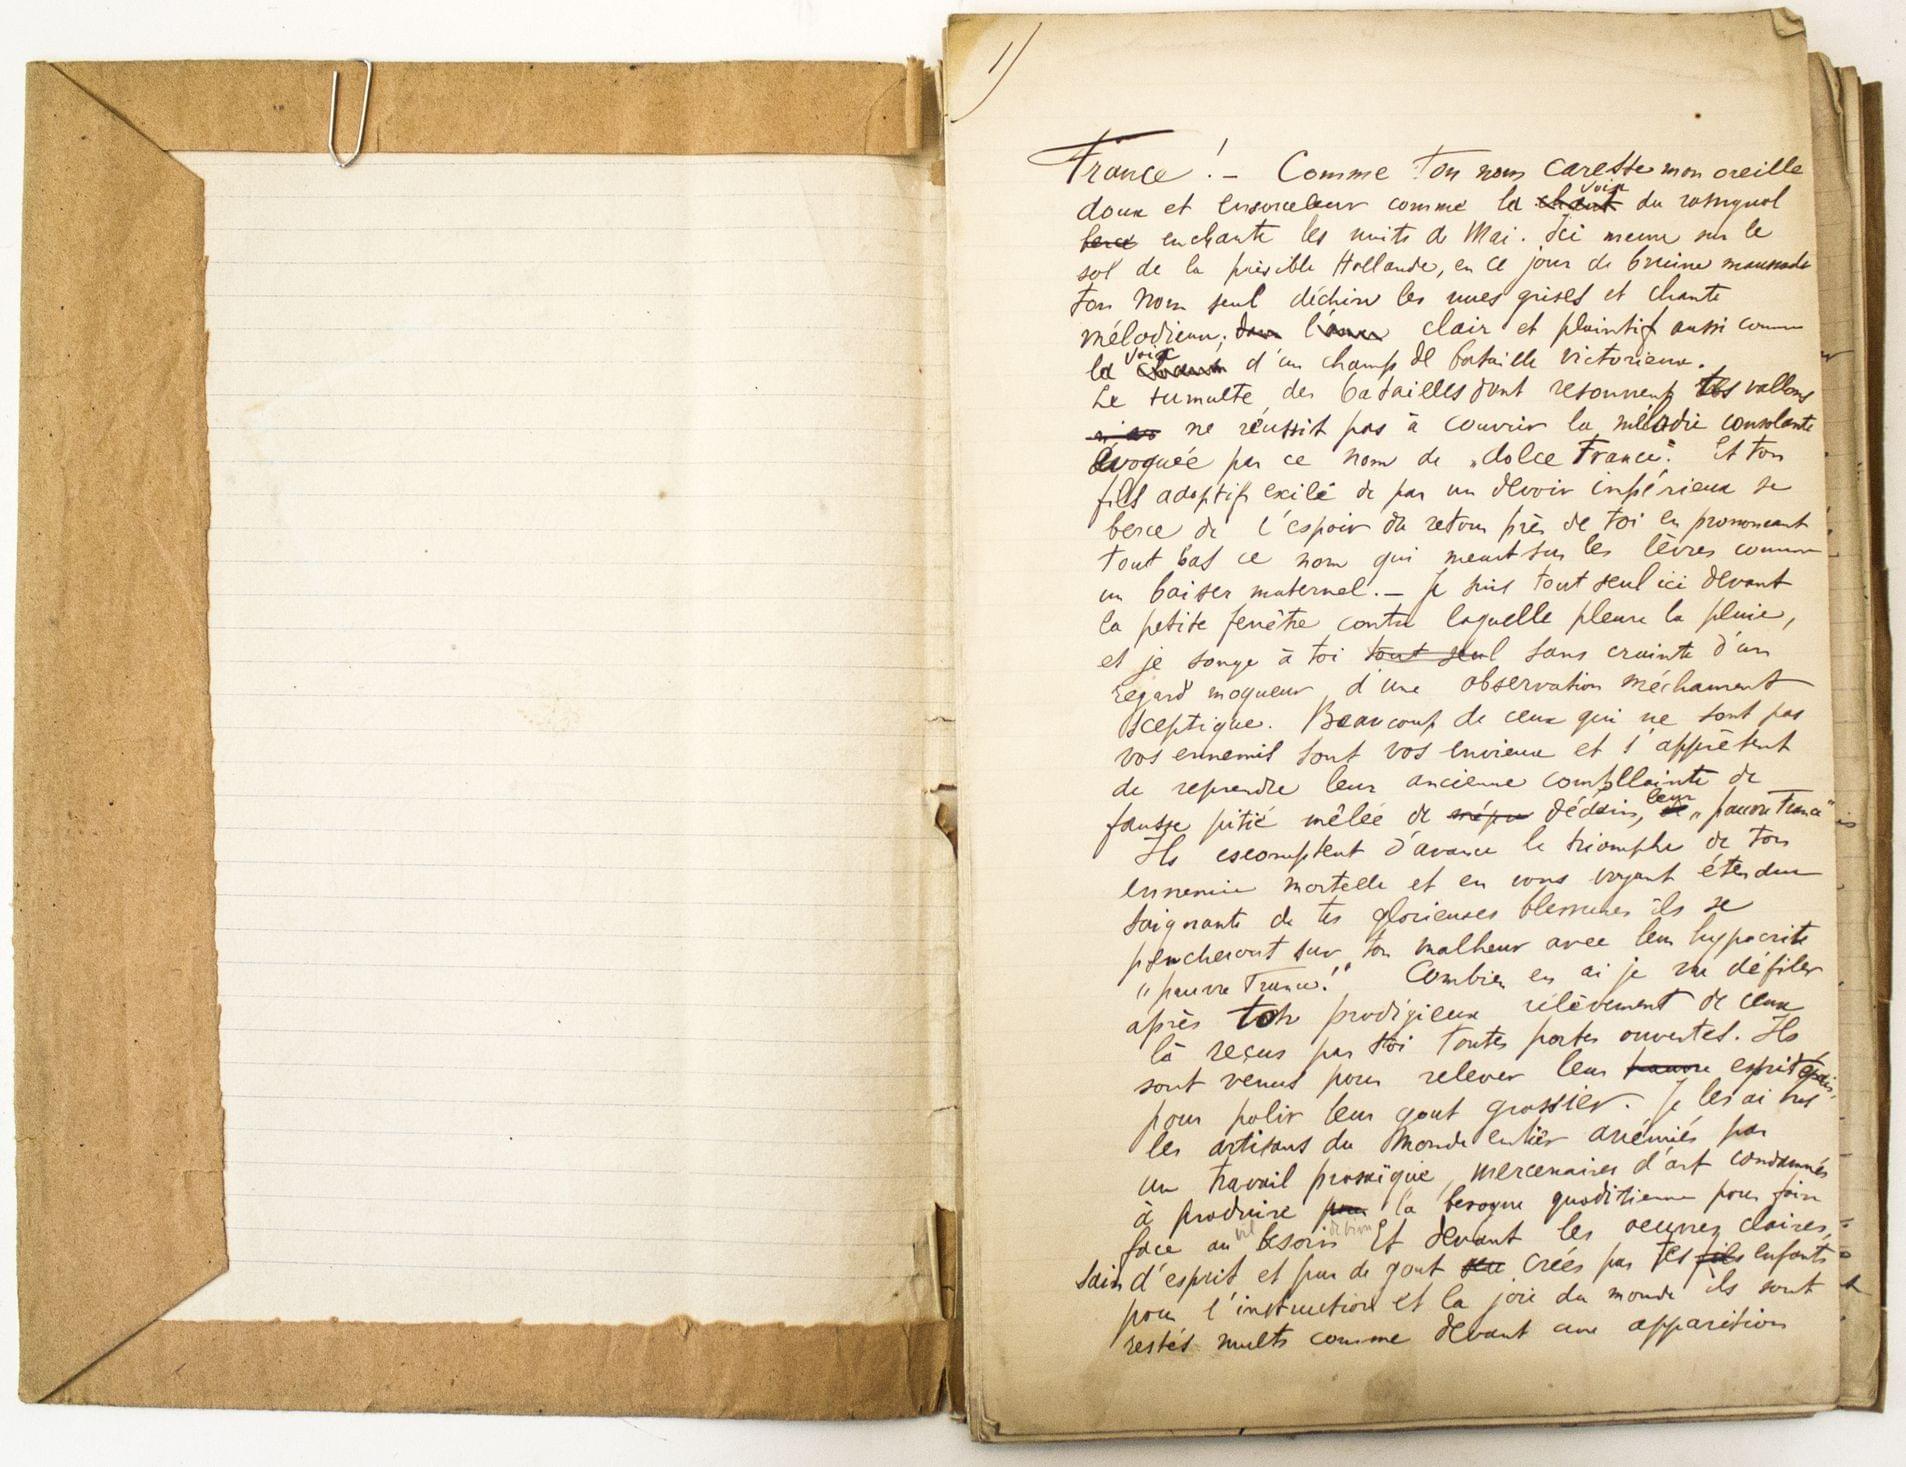 1)
France! – Comme ton nom caresse mon oreille
doux et ensorceleur comme la chant voix du rossignol
berce enchante les nuits de Mai. Ici meme sur le
sol de la paisible Hollande, en ce jour de bruine maussade
ton nom seul déchire les nues grises et chante
mélodieux, clair et plaintif aussi comme
la voix d'un champ de bataille victorieux.
Le tumulte des batailles dont resonnent tes vallons
ne réussit pas à couvrir la mélodie consolante
évoquée par ce nom de „dolce France". Et ton
fils adoptif exilé de par un devoir impérieux se
berce de l'espoir du retour près de toi en prononcant
tout bas ce nom qui meurt sur les lèvres comme
un baiser maternel. – Je suis tout seul ici devant
la petite fenêtre contre laquelle pleure la pluie,
et je songe à toi tout seul sans crainte d'un
regard moqueur, d'une observation méchament
sceptique. Beaucoup de ceux qui ne sont pas
vos ennemis sont vos envieux et s'apprêtent
de reprendre leur ancienne complainte de
fausse pitié mêlée de mépris dédain, leur „pauvre France"
Ils escomptent d'avance le triomphe de ton
ennemie mortelle et en vous voyant étendue
saignante de tes glorieuses blessures ils se
pencheront sur ton malheur avec leur hypocrite
"pauvre France!" Combien en ai je vu défiler
après ton prodigieux relèvement de ceux
là reçus par toi toutes portes ouvertes. Ils
sont venus pour relever leur pauvre esprit épais,
pour polir leur gout grossier. Je les ai vus
les artisans du Monde entier anémiés par
un travail prosaïque, mercenaires d'art condamnés
à produire pour la besogne quoditienne pour faire
face au vil besoin Et devant les oeuvres claires,
sain d'esprit et pur de gout créés par tes fils enfants
pour l'instruction et la joie du monde ils sont
restés muets comme devant une apparition